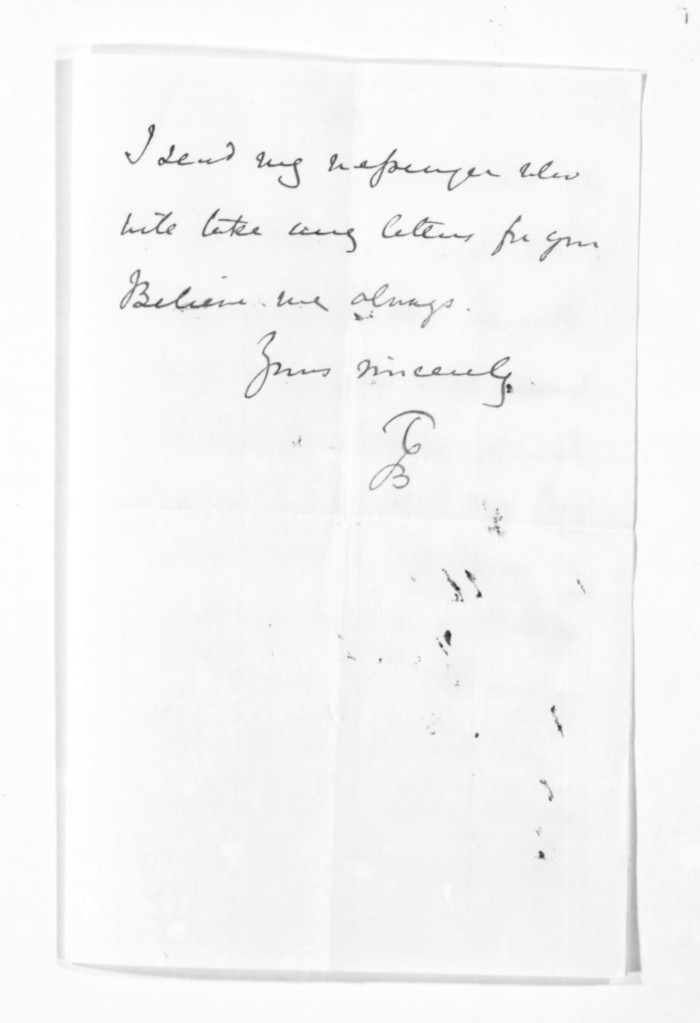 I send my messenger who
will take any letters for you
Believe me always.
Yours sincerely
GB